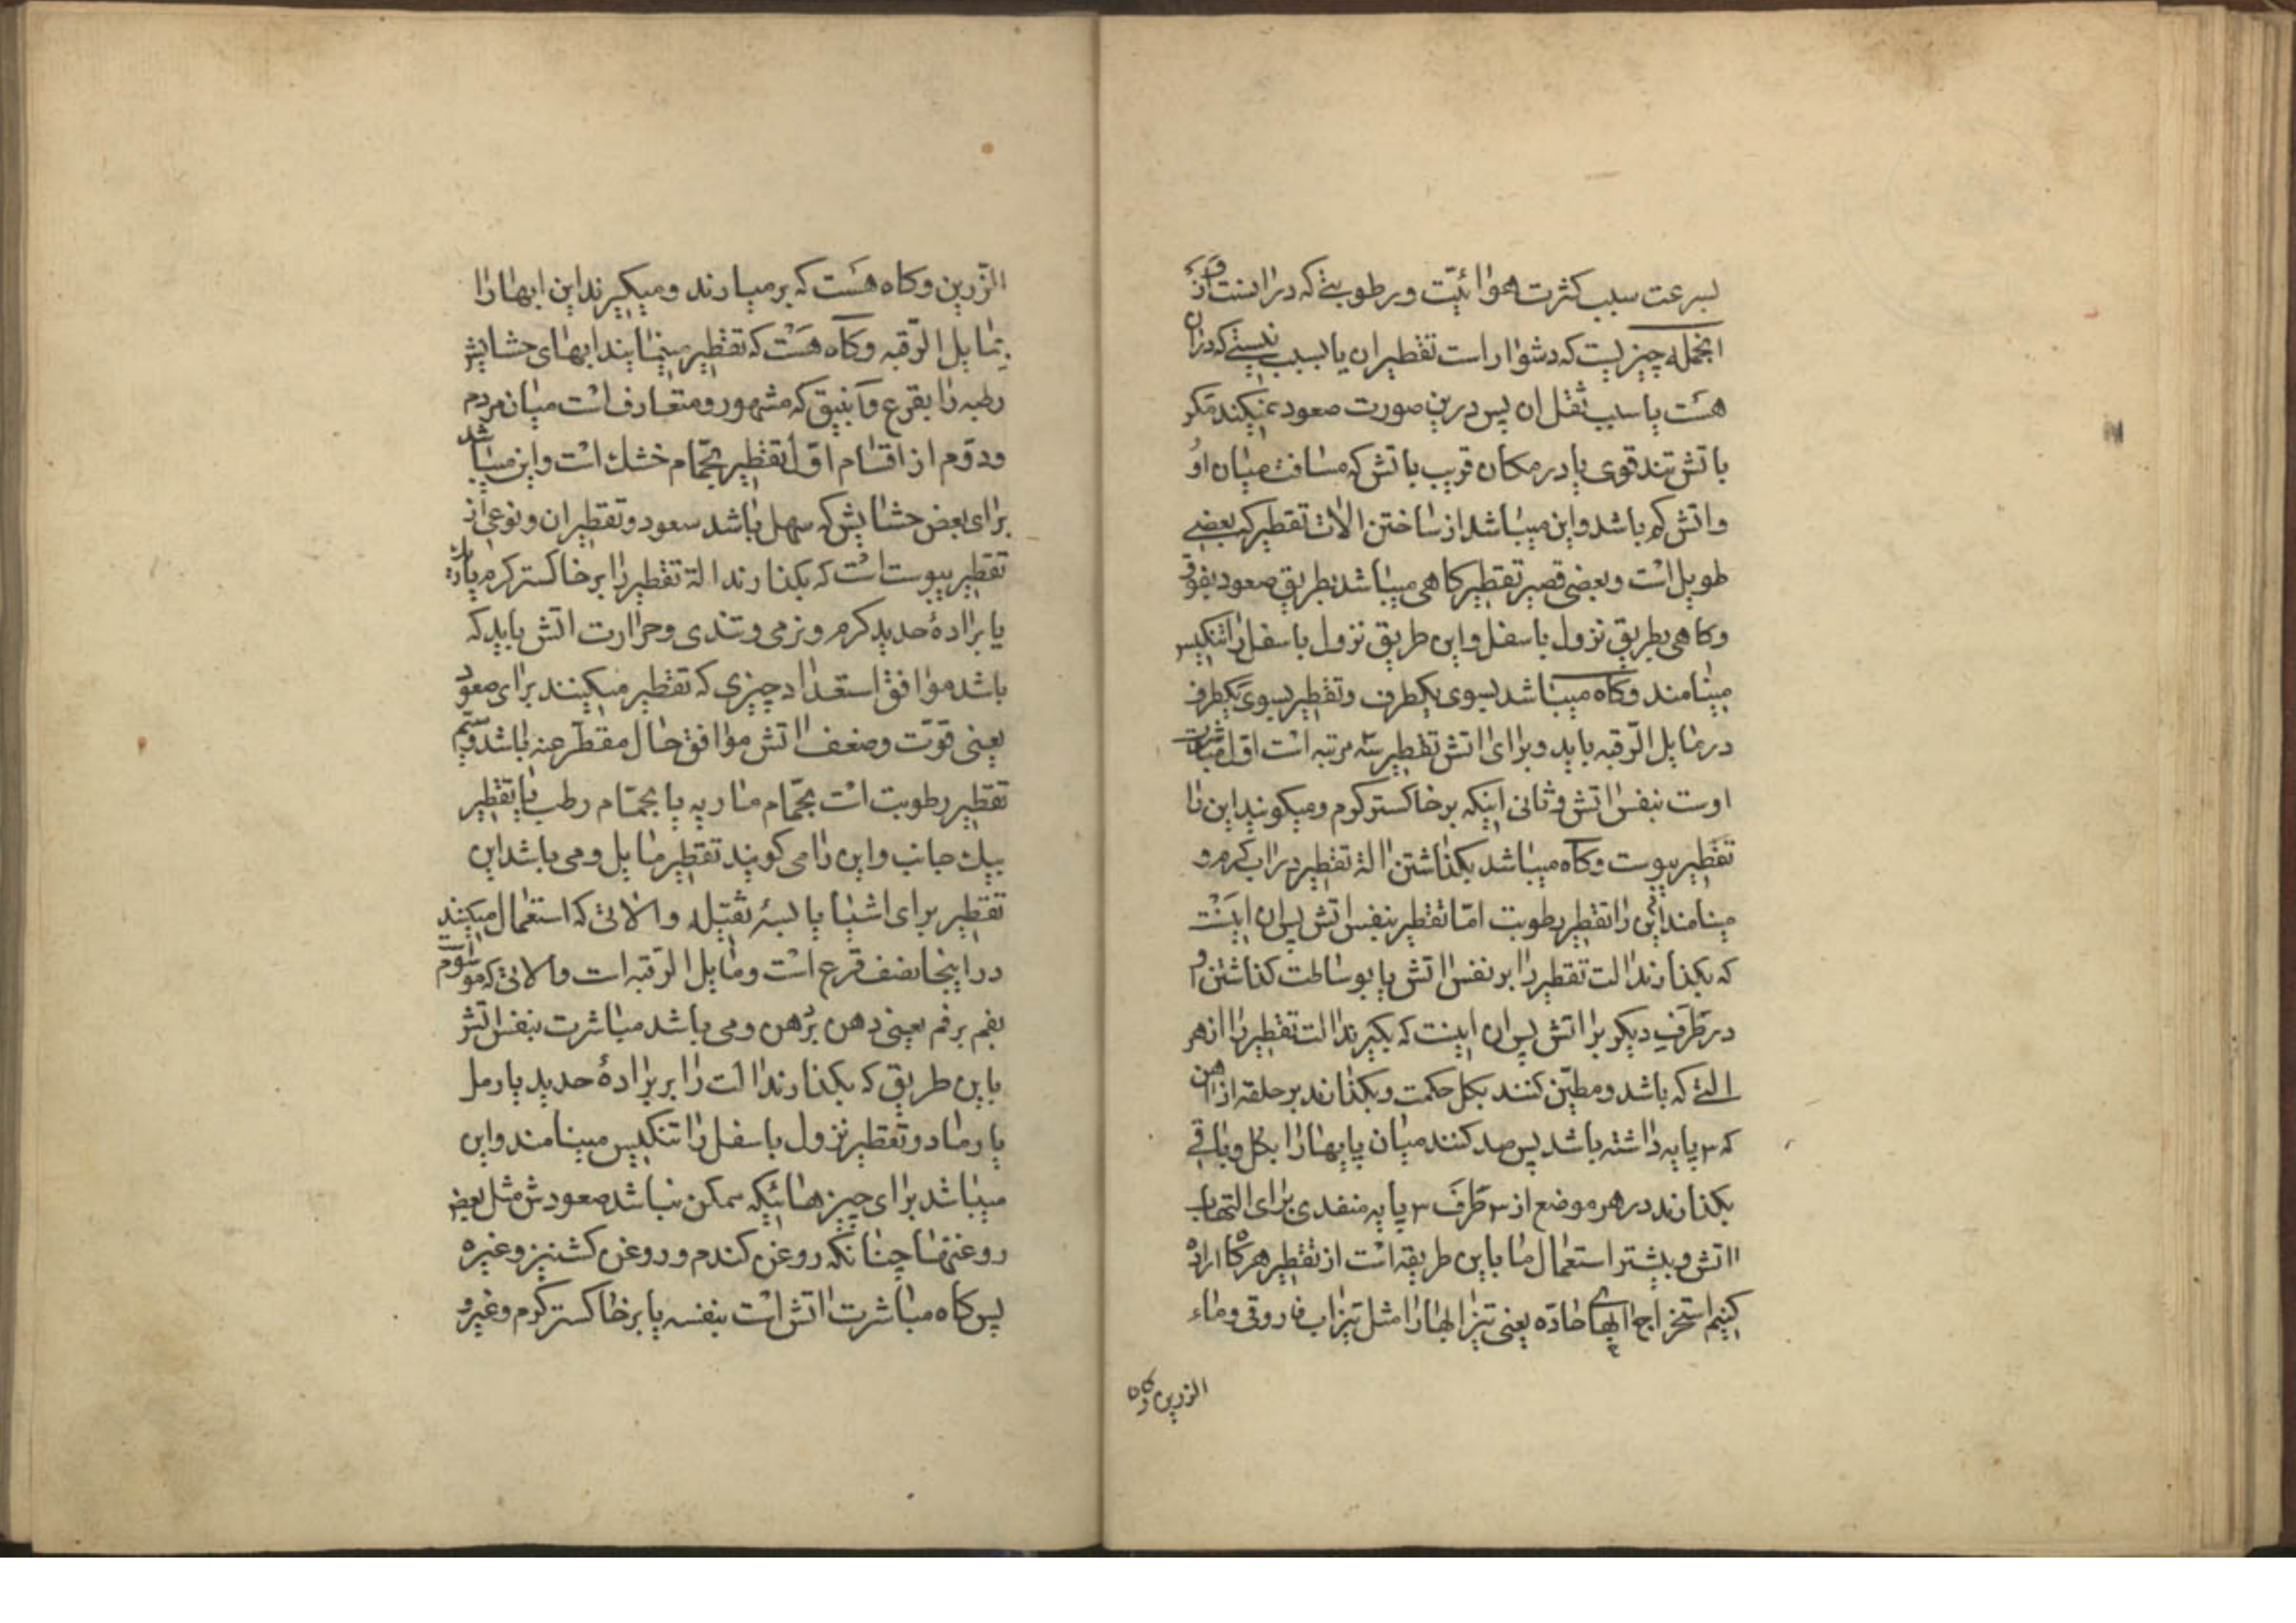 بسرعت سبب کثرت هوائیت ورطوبتی که در انست واز
انجمله چیزیست که دشوار است تقطیر ان یا بسبب یبسی که دران
هست یا سبب ثقل ان پس درین صورت صعود نمیکند مکر
باتش تند قوی یا در مکان قریب باتش که مسافت میان او
واتش کم باشد واین میباشد از ساختن الات تقطیر که بعضی
طویل است وبعضی قصیر تقطیر کاهی میباشد بطریق صعود بفوق
وکاهی بطریق نزول باسفل واین طریق نزول باسفل را تنکیس
مینامند وکاه میباشد بسوی یکطرف وتقطیر بسوی یکطرف
در مایل الرقبه باید وبرای اتش تقطیر سه مرتبه است اول مباشرت
اوست بنفس اتش وثانی اینکه بر خاکستر کرم ومیکویند این را
تقطیر یبوست وکاه میباشد بکذاشتن الة تقطیر در اب کرم و
مینامند این را تقطیر رطوبت اما تقطیر بنفس اتش پس ان اینست
که بکذارند الت تقطیر را بر نفس اتش یا بوساطت کذاشتن او
در ظرف دیکر بر اتش پس ان اینست که بکیرند الت تقطیر را از هر
التی که باشد ومطین کنند بکل حکمت وبکذارند بر حلقه از اهن
که ۳ پایه داشته باشد پس صد کنند میان پایها را بکل وباقی
بکذارند در هر موضع از ۳ طرف ۳ پایه منفدی برای التهاب
اتش وبیشتر استعمال ما باین طریقه است از تقطیر هرکاه اراده
کنیم استخراج ابهای حاده یعنی تیزابها را مثل تیزاب فاروقی وماء
الزرین وکاه
الزرین وکاه هست که بر میارند ومیکیرند این ابها را
بمایل الرقبه وکاه هست که تقطیر مینمایند ابهای حشایش
رطبه را بقرع وانبیق که مشهور ومتعارف است میان مردم
ودوم از اقسام اول تقطیر بحمام خشک است واین میباشد
برای بعض حشایش که سهل باشد سعود وتقطیر ان ونوعی از
تقطیر یبوست است که بکذارند الة تقطیر را بر خاکستر کرم
یا برادهٔ حدید کرم ونرمی وتندی وحرارت اتش باید که
باشد موافق استعداد چیزی که تقطیر میکنند برای صعود
یعنی قوت وضعف اتش موافق حال مقطر منه باشد وسیم
تقطیر رطوبت است بحمام ماریه یا بحمام رطب یا تقطیر
بیک جانب واین را می کویند تقطیر مایل ومی باشد این
تقطیر برای اشیا یابسهٔ ثقیله والاتی که استعمال میکنند
در اینجا نصف قرع است ومایل الرقبه است والاتی که موسوم
بفم بر فم یعنی دهن بر دهن ومی باشد مباشرت بنفس اتش
باین طریق که بکذارند الت را بر برادهٔ حدید یا رمل
یا رماد وتقطیر نزول باسفل را تنکیس مینامند واین
میباشد برای چیزهائیکه ممکن نباشد صعودش مثل بعض
روغنها چنانکه روغن کندم وروغن کشنیز وغیره
پس کاه مباشرت اتش است بنفسه یا بر خاکستر کرم وغیره